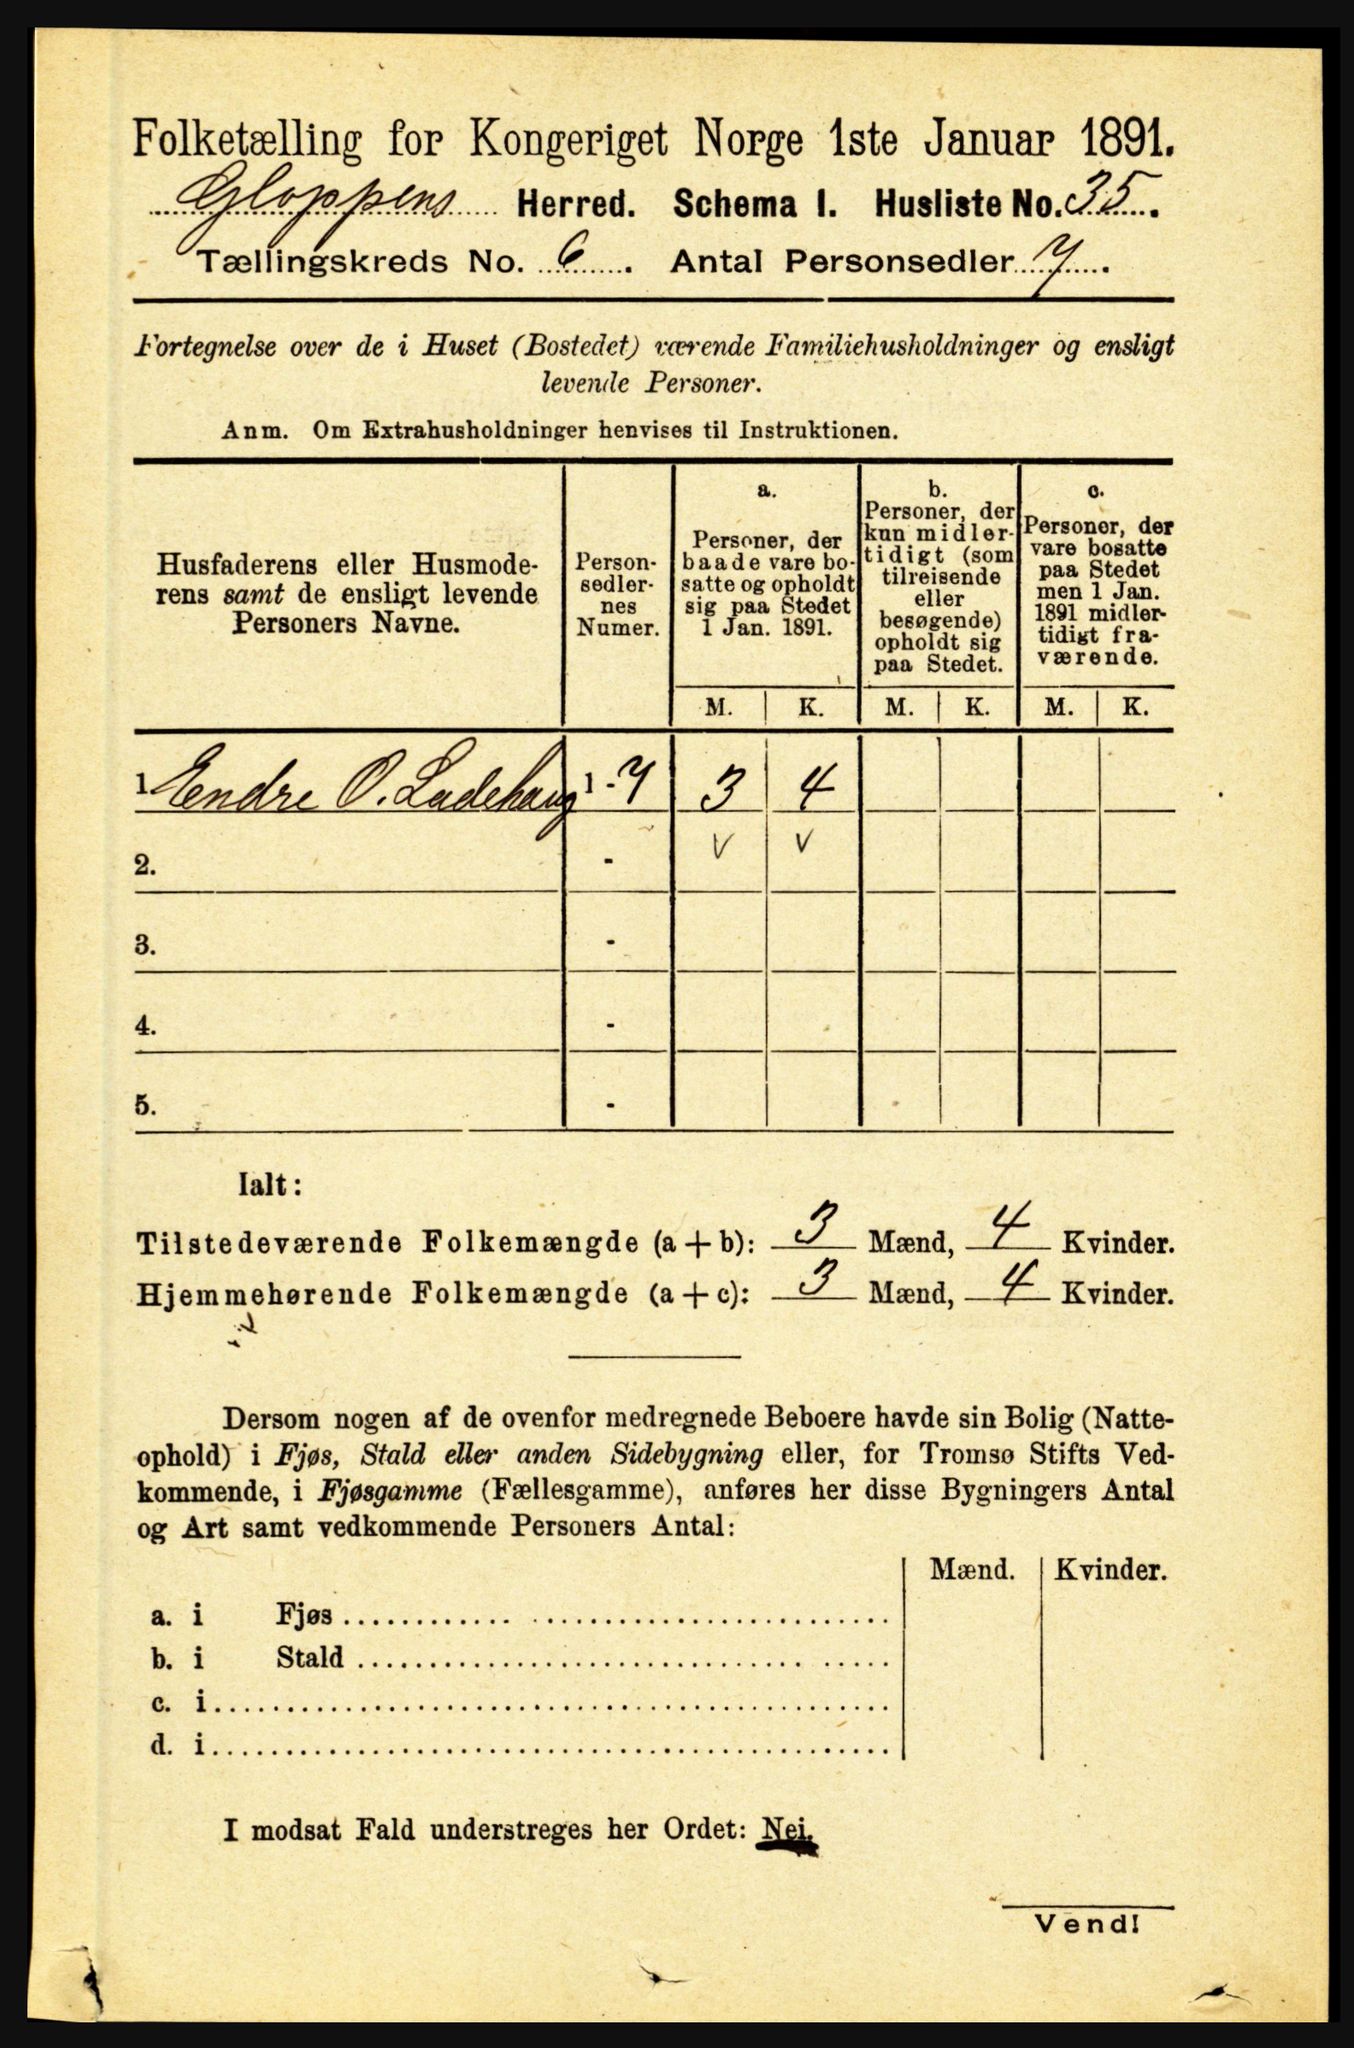 Folketælling for Kongeriget Norge 1ste Januar 1891.
Gloppens Herred. Schema I. Husliste No. 35.
Tællingskreds No. 6. Antal Personsedler 7.
Fortegnelse over de i Huset (Bostedet) værende Familiehusholdninger og ensligt
levende Personer.
Anm. Om Extrahusholdninger henvises til Instruktionen.
Husfaderens eller Husmode-
rens samt de ensligt levende
Personers Navne.
Person-
sedler-
nes
Numer.
a.
Personer, der
baade vare bo-
satte og opholdt
sig paa Stedet
1 Jan. 1891.
b.
Personer, der
kun midler-
tidigt (som
tilreisende
eller
besøgende)
opholdt sig
paa Stedet.
c.
Personer, der
vare bosatte
paa Stedet
men 1 Jan.
1891 midler-
tidigt fra-
værende.
M. K. M. K. M. K.
1. Endre O. Ladehaug 1-7 3 4
2. - v v
3. -
4. -
5. -
Ialt:
Tilstedeværende Folkemængde (a + b): 3 Mænd, 4 Kvinder.
Hjemmehørende Folkemængde (a + c): 3 Mænd, 4 Kvinder.
Dersom nogen af de ovenfor medregnede Beboere havde sin Bolig (Natte-
ophold) i Fjøs, Stald eller anden Sidebygning eller, for Tromsø Stifts Ved-
kommende, i Fjøsgamme (Fællesgamme), anføres her disse Bygningers Antal
og Art samt vedkommende Personers Antal:
Mænd. Kvinder.
a. i Fjøs
b. i Stald
c. i
d. i
I modsat Fald understreges her Ordet: Nei.
Vend!